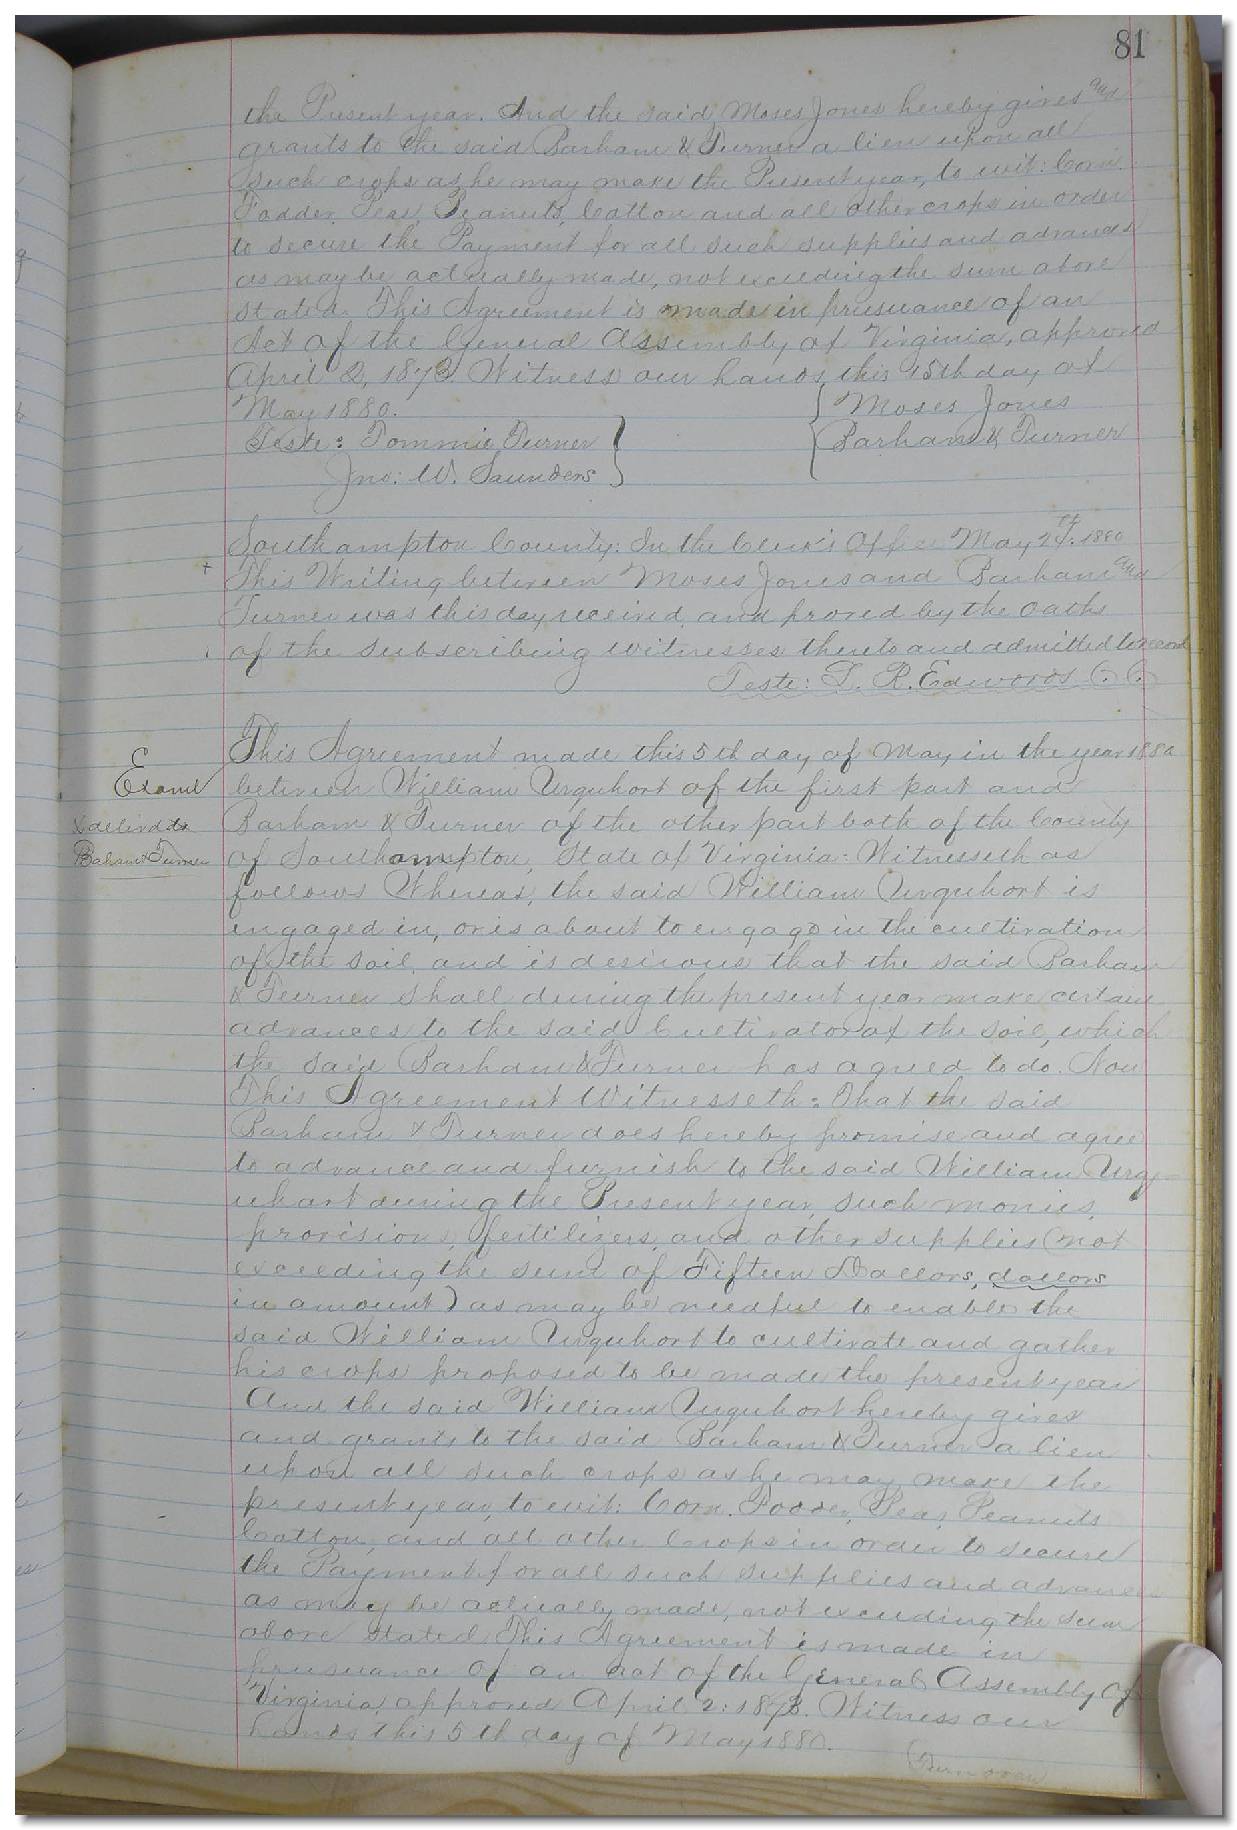 81
the Present year. And the said Moses Jones hereby gives and
grants to the said Barham & Turner a lien upon all
such crops as he may make the Present year, to wit: Corn
Fodder, Peas, Peanuts, Cotton and all other crops in order
to secure the Payment for all such supplies and advances
as may be actually made, not exceeding the sum above
stated. This Agreement is made in prusuance of an
Act of the General Assembly of Virginia, approved
April 2, 1873. Witness our hands, this 15th day of
May 1880.
Moses Jones
Teste: Tommie Turner
Barham & Turner
Jno: W. Saunders
Southampton County: In the Clerk's Office May 1880
This Writing between Moses Jones and Barham and
Turner was this day received and proved by the oaths
of the subscribing witnesses thereto and admitted to record
Teste: L. R. Edwards C. C.
This Agreement made this 5th day of May, in the year 1880
Examd
between William Urquhort of the first part and
& delivd to
Barham & Turner of the other part both of the County
Barham & Turner
of Southampton, State of Virginia: Witnesseth as
follows Whereas, the said William Urquhort is
engaged in, or is about to engage in the cultivation
of the soil, and is desirous that the said Barham
& Turner shall during the present year make certain
advances to the said Cultivator of the soil, which
the said Barham & Turner has agreed to do. Now
This Agreement Witnesseth: That the said
Barham & Turner does hereby promise and agree
to advance and furnish to the said William Urq-
uhart during the Present year, such monies,
provisions, fertilizers, and other supplies (not
exceeding the sum of Fifteen Dollars, dollars
in amount) as may be needful to enable the
said William Urquhort to cultivate and gather
his crops proposed to be made the present year
And the said William Urquhort hereby gives
and grants to the said Barham & Turner a lien
upon all such crops as he may make the
present year, to wit: Corn, Fodder, Peas, Peanuts
Cotton, and all other Crops in order to secure
the Payment for all such supplies and advances
as may be actually made, not exceeding the sum
above stated. This Agreement is made in
prusuance of an act of the General Assembly of
Virginia, approved April 2: 1873. Witness our
hands this 5th day of May 1880.
(Turn over